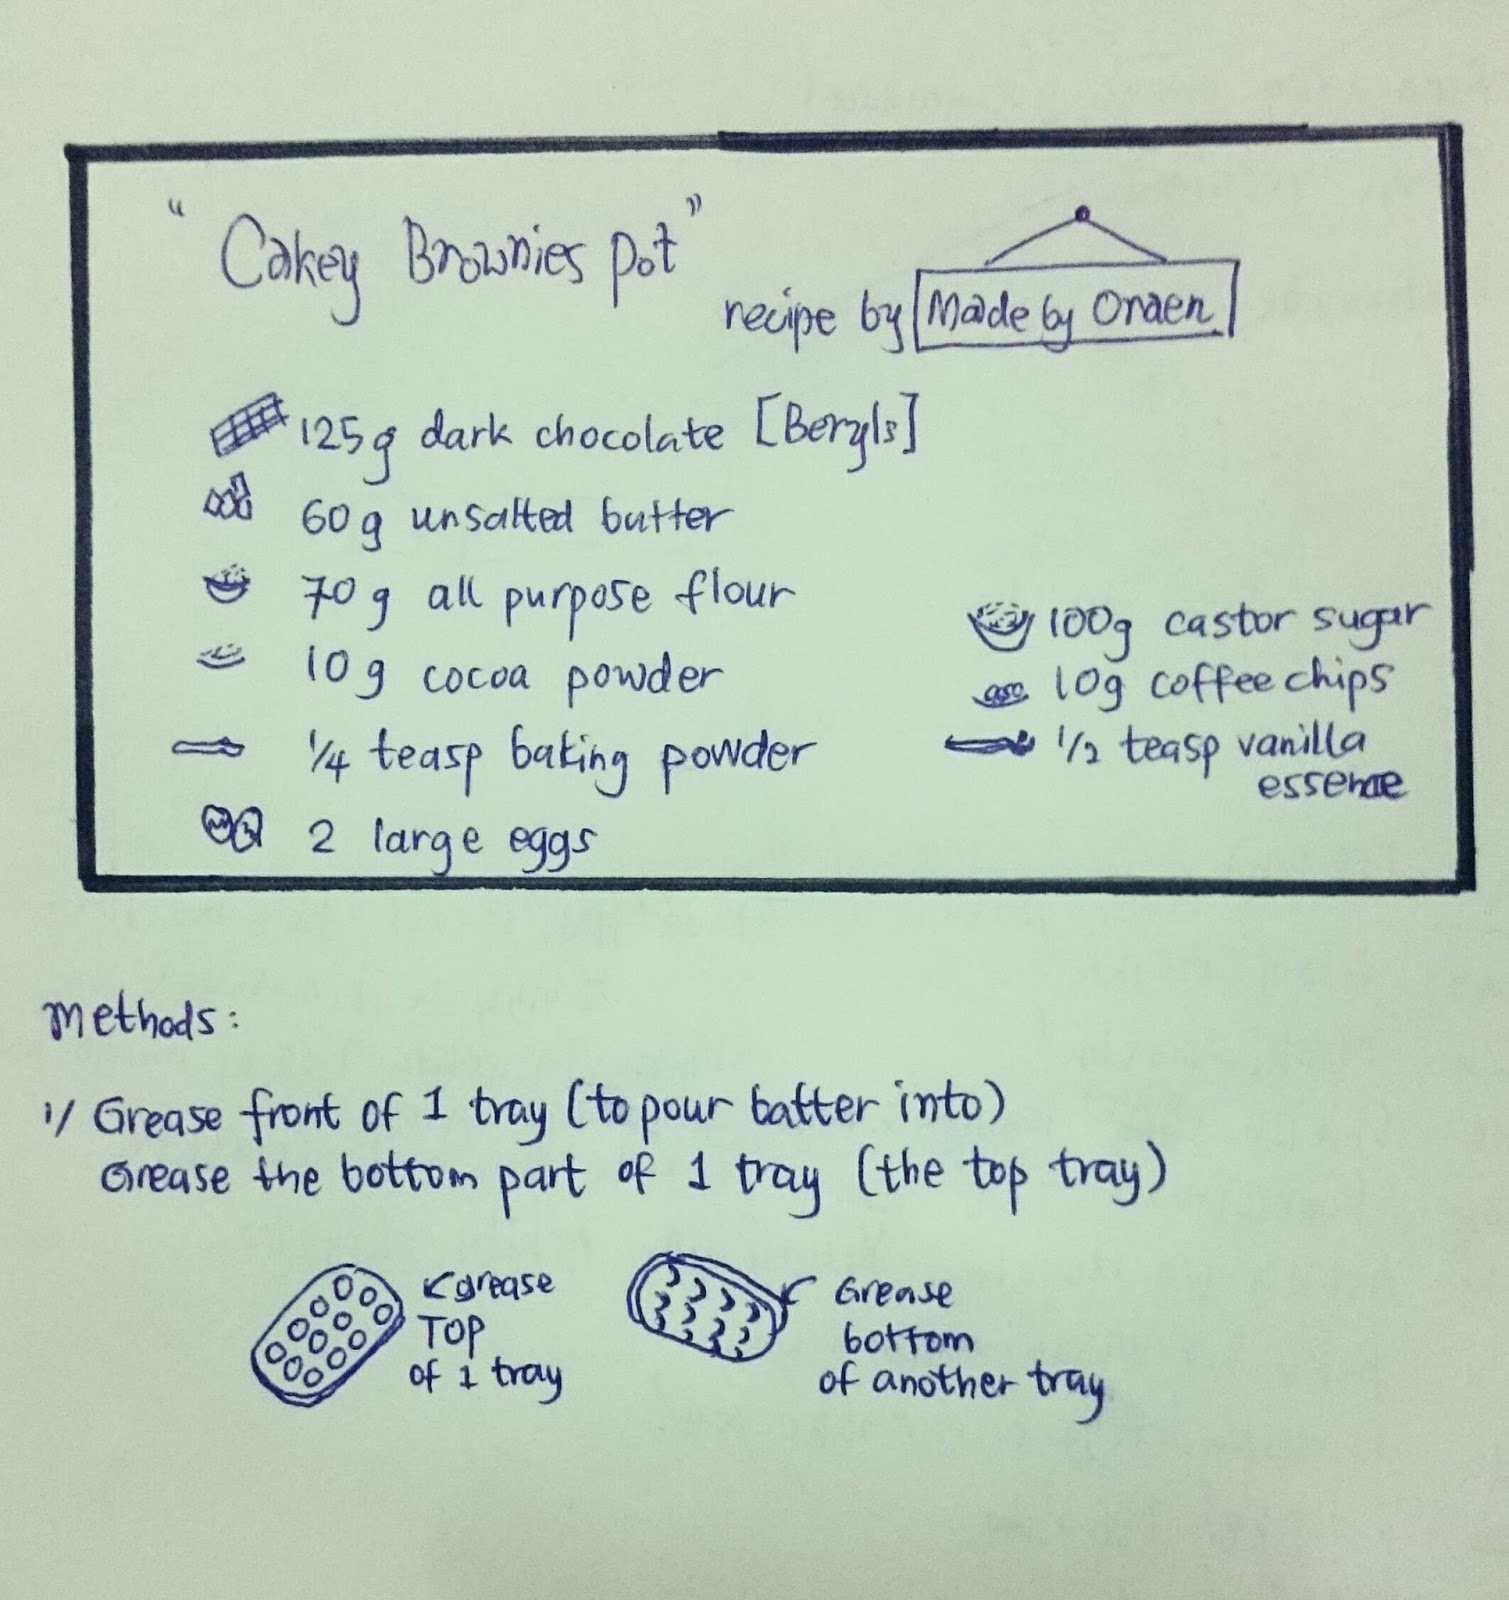 "Cakey Brownies pot"
recipe by Made by Onaen
125g dark chocolate [Beryls]
60g unsalted butter
70g all purpose flour
10g cocoa powder
1/4 teasp baking powder
2 large eggs
100g castor sugar
10g coffee chips
1/2 teasp vanilla
essence
Methods:
1/ Grease front of 1 tray (to pour batter into)
Grease the bottom part of 1 tray (the top tray)
grease
TOP
of 1 tray
Grease
bottom
of another tray